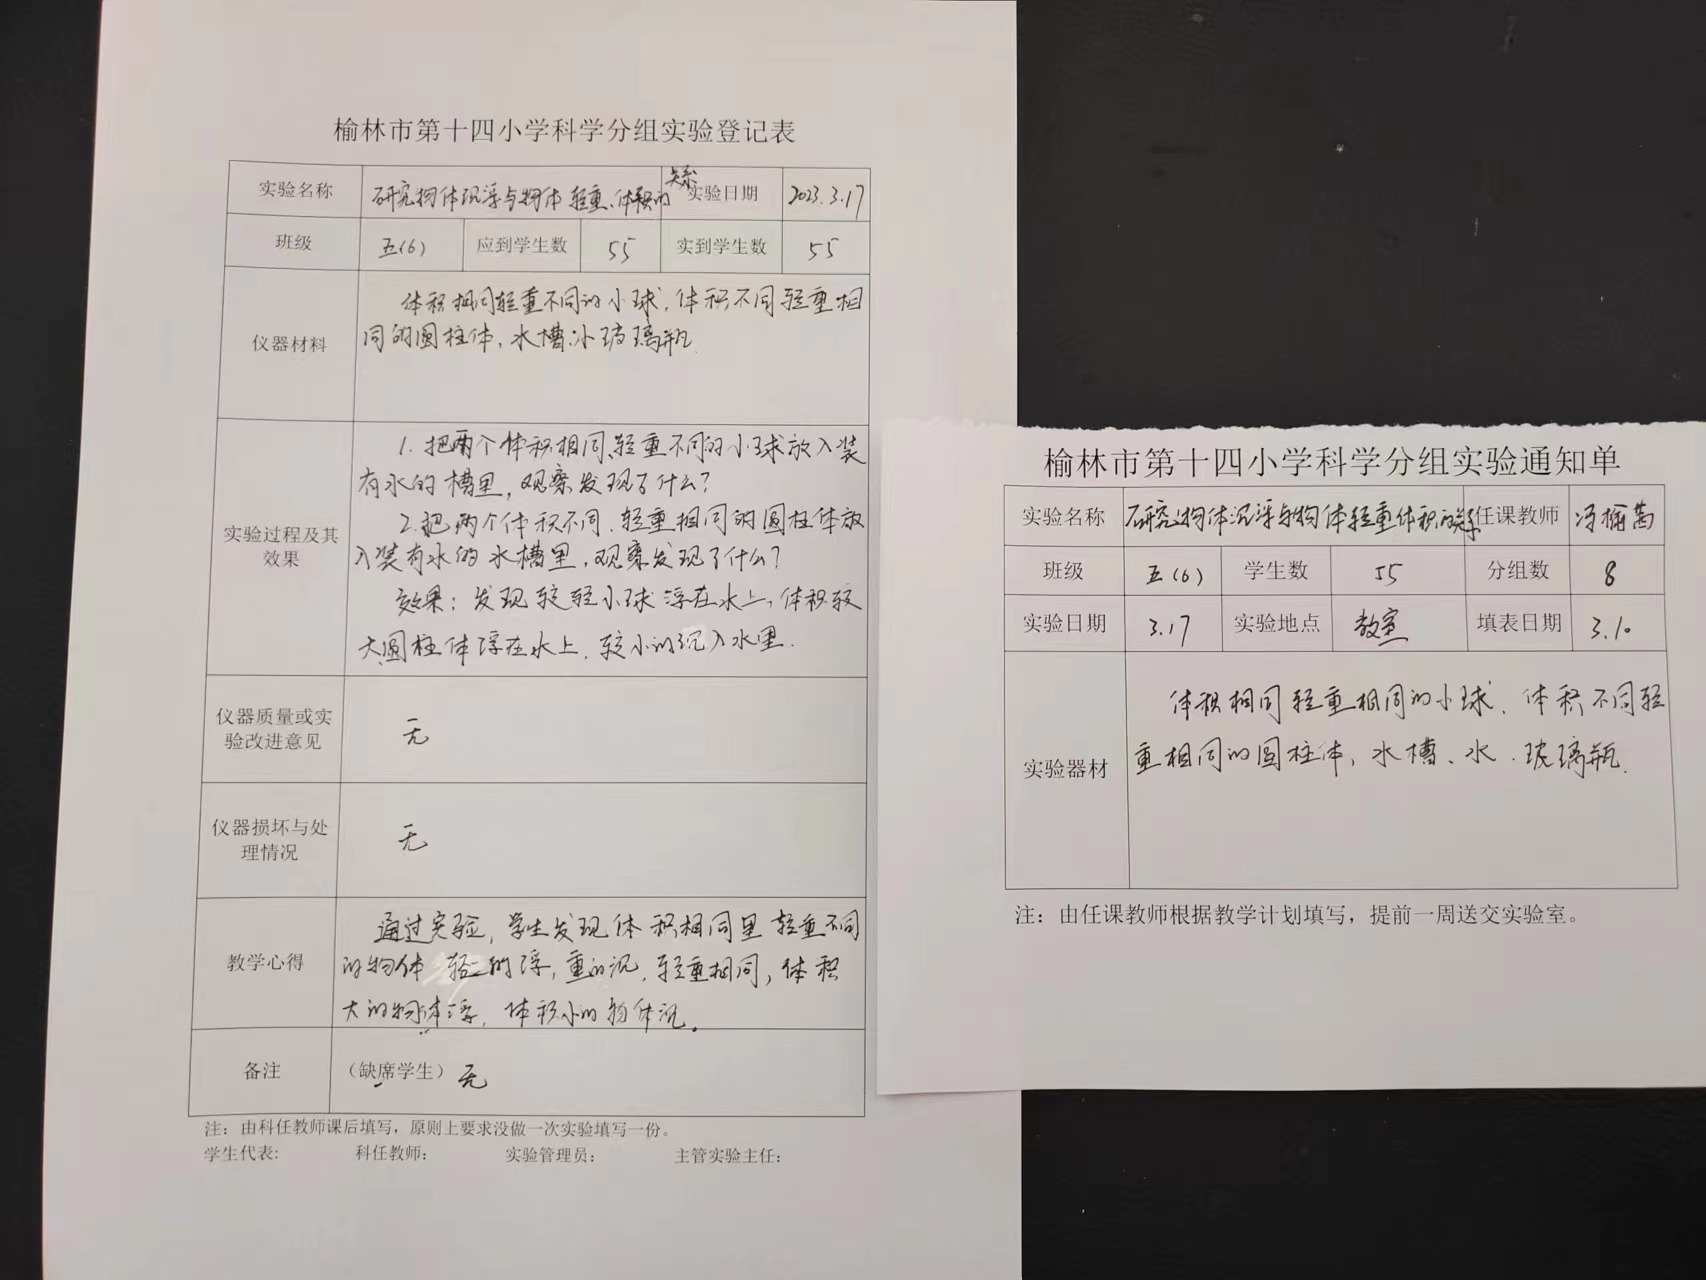 榆林市第十四小学科学分组实验登记表
实验名称 研究物体沉浮与物体轻重、体积的关系 实验日期 2023.3.17
班级 五(6) 应到学生数 55 实到学生数 55
仪器材料
体积相同轻重不同的小球,体积不同轻重相
同的圆柱体,水槽,水,玻璃瓶
实验过程及其
效果
1.把两个体积相同、轻重不同的小球放入装
有水的槽里,观察发现了什么?
2.把两个体积不同、轻重相同的圆柱体放
入装有水的水槽里,观察发现了什么?
效果:发现较轻小球浮在水上,体积较
大圆柱体浮在水上,较小的沉入水里.
仪器质量或实
验改进意见
无
仪器损坏与处
理情况
无
教学心得
通过实验,学生发现体积相同里轻重不同
的物体 轻的浮,重的沉,轻重相同,体积
大的物体浮,体积小的物体沉。
备注 (缺席学生) 无
注:由科任教师课后填写,原则上要求没做一次实验填写一份。
学生代表: 科任教师: 实验管理员: 主管实验主任:
榆林市第十四小学科学分组实验通知单
实验名称 研究物体沉浮与物体轻重体积的关系 任课教师 冯榆茜
班级 五(6) 学生数 55 分组数 8
实验日期 3.17 实验地点 教室 填表日期 3.10
实验器材
体积相同轻重相同的小球、体积不同轻
重相同的圆柱体,水槽、水.玻璃瓶.
注:由任课教师根据教学计划填写,提前一周送交实验室。